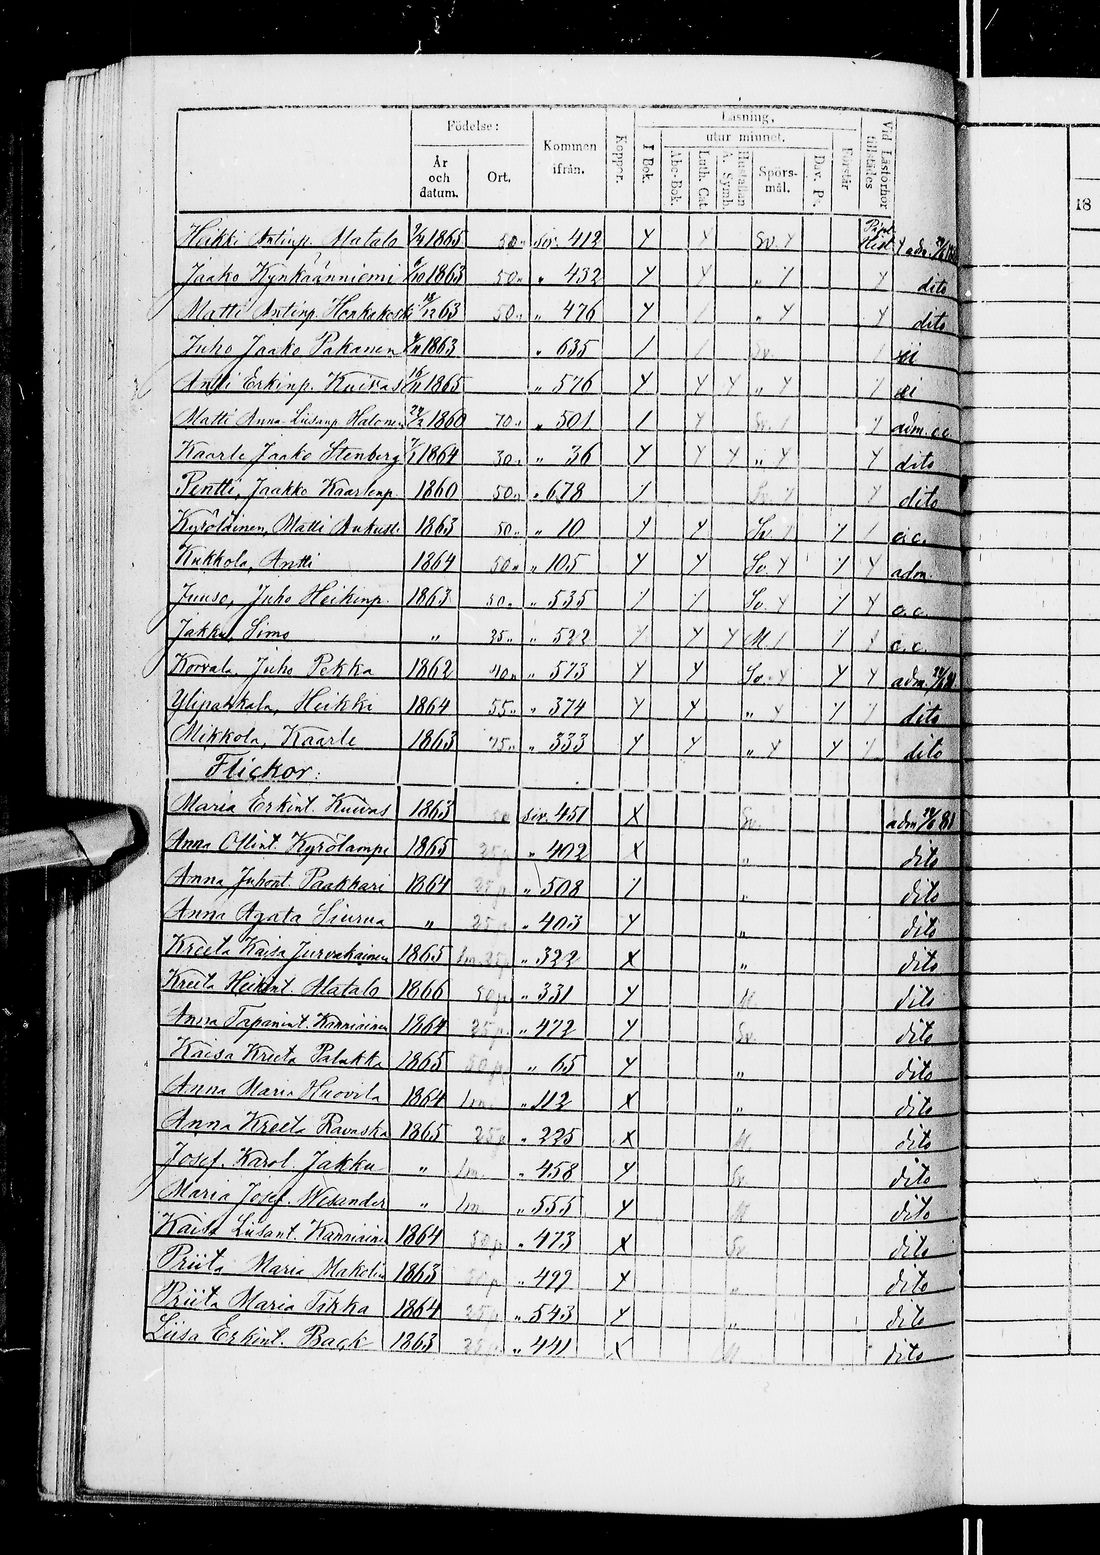 Födelse:
År och datum.
Ort.
Kommen ifrån.
Koppor.
Läsning,
utur minnet.
I Bok.
Abc-Bok.
Luth. Cat.
Hustaflan A. Symb.
Spörs-mål.
Dav. Ps.
Förstår
Vid Läsförhör tillstädes
18
Heikki Antinp. Alatalo 1865 50 „ siv. 412 Sv.
Jaako Kynkäänniemi 1863 50 „ „ 432 „ dito
Matti Antinp. Honkakoski 63 50 „ „ 476 „ dito
Juho Jaako Pakanen 1863 „ 635 Sv.
Antti Erkinp. Kuivas 1865 „ 576 „
Matti Anna-Liisanp Halonen 1860 70 „ „ 501 Sv. adm. o.c.
Kaarle Jaako Stenberg 1864 30 „ „ 36 „ dito
Pentti, Jaakko Kaarlenp. 1860 50 „ „ 678 Sv. dito
Kyröläinen, Matti Aukusti 1863 50 „ „ 10 Sv. o.c.
Kukkola, Antti 1864 50 „ „ 105 Sv. adm.
Juuso, Juho Heikinp. 1863 50 „ „ 535 Sv. o.c.
Jakku, Simo „ 25 „ „ 522 M. o.c.
Korvala, Juho Pekka 1862 40 „ „ 573 Sv. adm.
Ylipahkala, Heikki 1864 55 „ „ 374 „ dito
Mikkola, Kaarle 1863 75 „ „ 333 „ dito
Flickor:
Maria Erkint. Kuivas 1863 50 siv. 451 X Sv. adm 81
Anna Ollint. Kyrölampi 1865 25 p. „ 402 X „ dito
Anna Juhont. Paakkari 1864 25 p. „ 508 „ dito
Anna Agata Siurua „ 25 p. „ 403 „ dito
Kreeta Kaisa Jurvakainen 1865 1m. 25 p. „ 322 X „ dito
Kreeta Heikint. Alatalo 1866 50 p. „ 331 M. dito
Anna Tapanint. Kanniainen 1864 25 p. „ 472 Sv. dito
Kaisa Kreeta Palakka 1865 50 p. „ 65 „ dito
Anna Maria Huovila 1864 1m. „ 112 X „ dito
Anna Kreeta Ravaska 1865 25 p. „ 225 X M. dito
Josef. Karol. Jakku „ 1m. „ 458 Sv. dito
Maria Josef. Wesander „ 1m. „ 555 M. dito
Kaisa Liisant. Kanniainen 1864 50 p. „ 473 X Sv. dito
Priita Maria Makolin 1863 50 p. „ 499 X „ dito
Priita Maria Tikka 1864 25 p. „ 543 „ dito
Liisa Erkint. Back 1863 25 p. „ 441 X M. dito